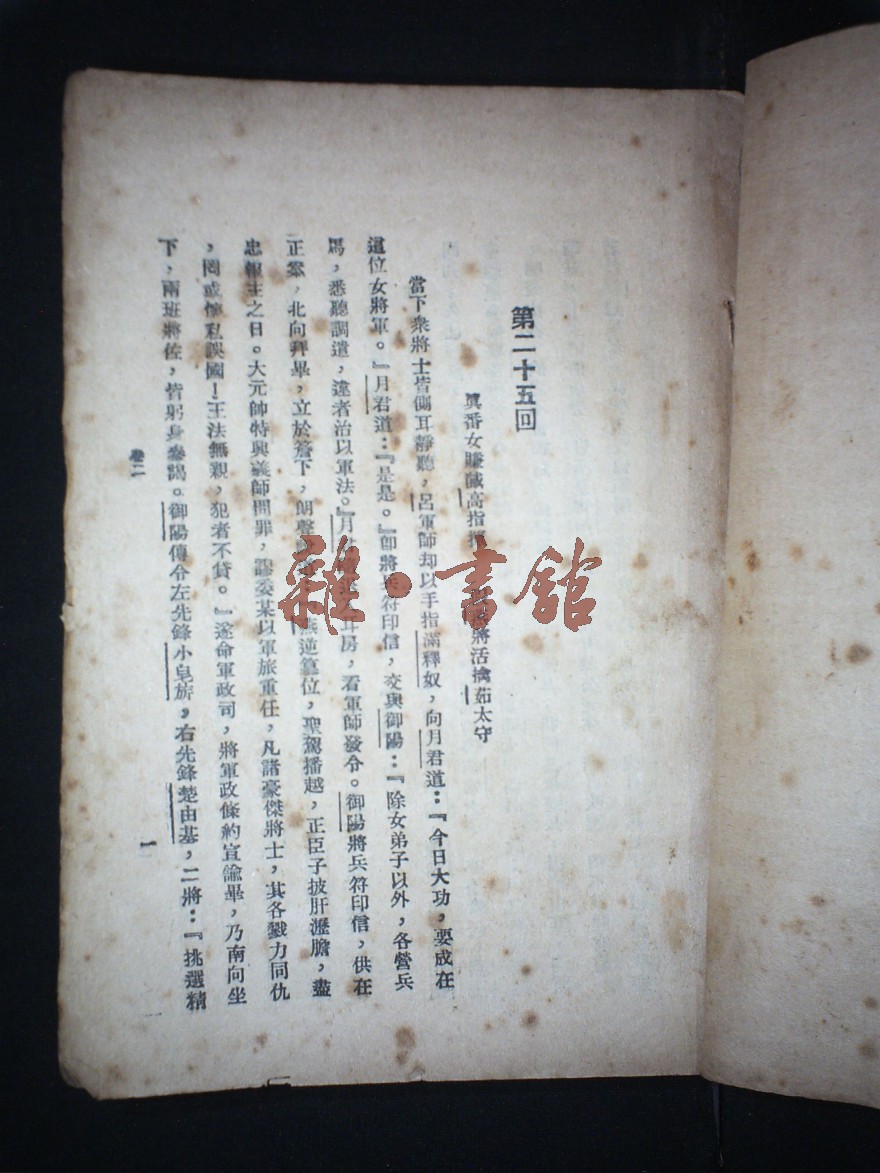 第二十五回
真番女賺馘高指揮
將活擒茹太守
當下衆將士皆側耳靜聽,呂軍師却以手指滿釋奴,向月君道:『今日大功,要成在
這位女將軍。』月君道:『是是。』卽將兵符印信,交與御陽:『除女弟子以外,各營兵
馬,悉聽調遣,違者治以軍法。』月君 耳房,看軍師發令。御陽將兵符印信,供在
正案,北向拜畢,立於簷下,朗聲 燕逆篡位,聖駕播越,正臣子披肝瀝膽,盡
忠報主之日。大元帥特興義師問罪,謬委某以軍旅重任,凡諸豪傑將士,其各戮力同仇
,罔或懷私誤國!王法無親,犯者不貸。』遂命軍政司,將軍政條約宣諭畢,乃南向坐
下,兩班將佐,皆躬身參謁。御陽傳令左先鋒小皂旂,右先鋒楚由基,二將:『挑選精
卷二
一
雜·書館